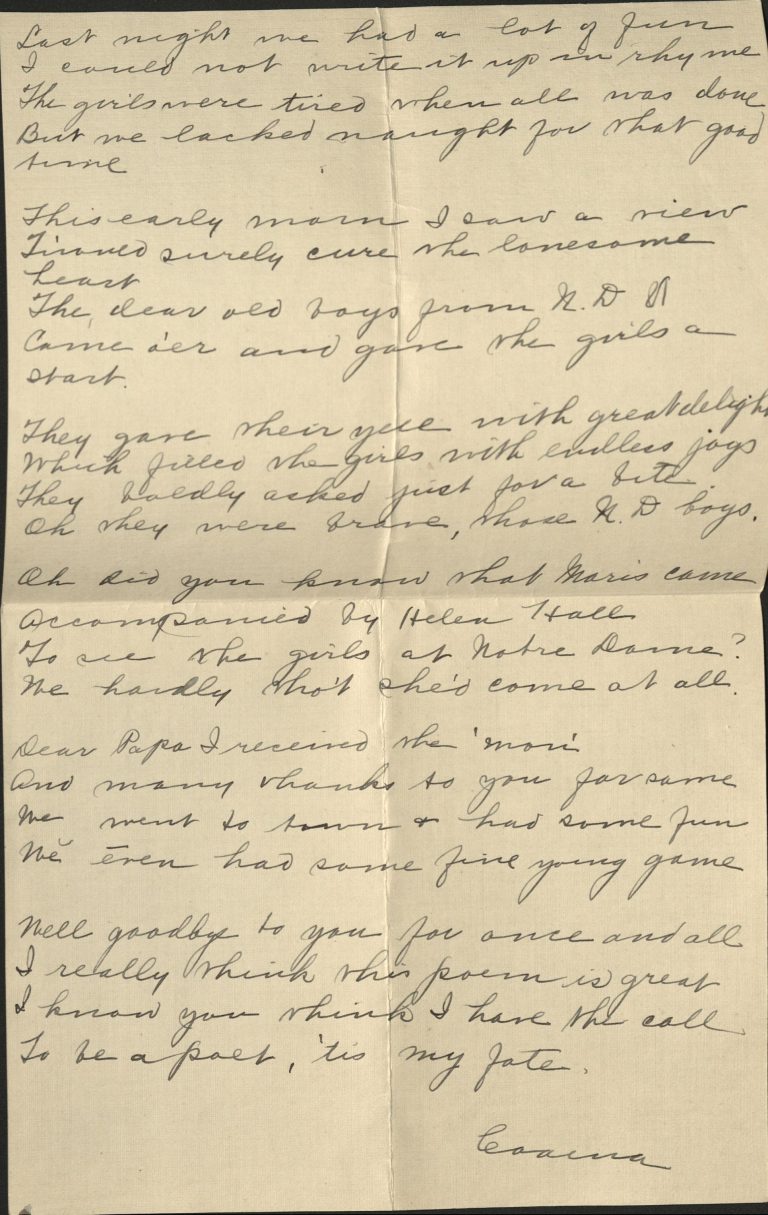 Last night we had a lot of fun
I could not write it up in rhyme
The girls were tired when all was done
But we lacked naught for that good
time
This early morn I saw a view
T'would surely cure the lonesome
heart
The dear old boys from N. D U
Came o'er and gave the girls a
start.
They gave their yell with great delight
Which filled the girls with endless joys
They boldly asked just for a bite.
Oh they were brave, those N. D boys.
Oh did you know that Maris came
Accompanied by Helen Hall
To see the girls at Notre Dame?
We hardly tho't she'd come at all.
Dear Papa I received the 'mon'
And many thanks to you for same
We went to town & had some fun
We even had some fine young game
Well goodbye to you for once and all
I really think this poem is great
I know you think I have the call
To be a poet, 'tis my fate.